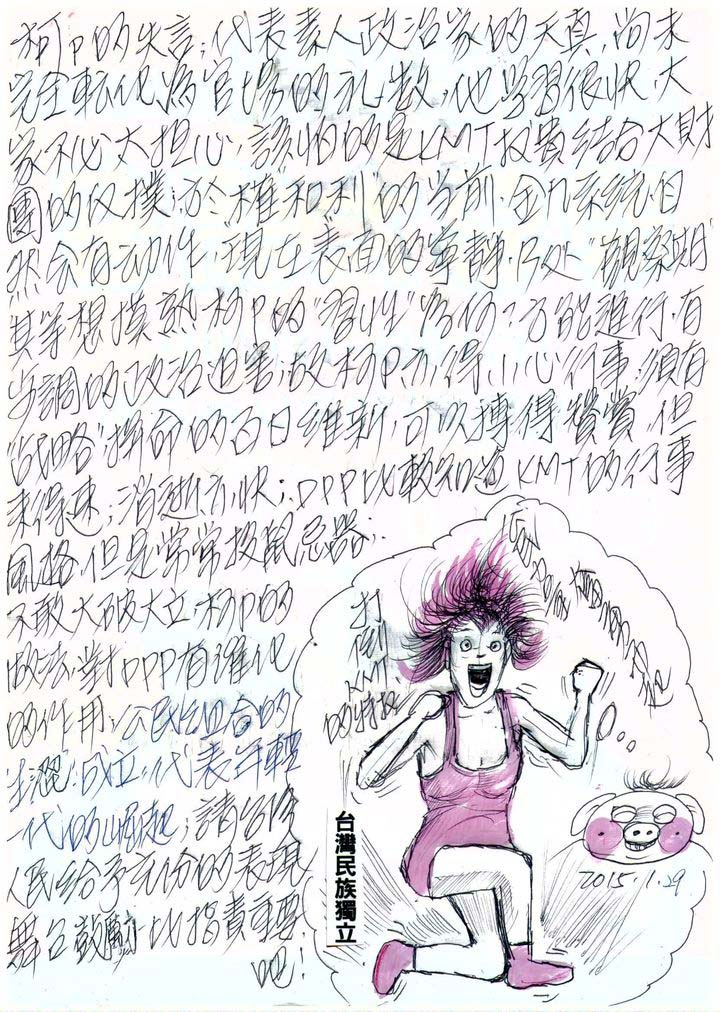 柯P的失言;代表素人政治家的天真,尚未
完全転化為官場的礼数,他学習很快,大
家不必太担心,該怕的是KMT权貴結合大財
團的反撲;於"權"和"利"的当前,金九系統,自
然会有动作,"現在"表面的寧静,只処"觀察期"
其等想摸熟柯P的"習性"為何?方能進行,有
步調的政治迫害;故柯P亦得小心行事,須有
"战略",拚命的百日維新,可以搏得賛賞,但
来得速;消逝亦快;DPP比較知道KMT的行事
風格,但是常常投鼠忌器;
不敢大破大立,柯P的
做法,對DPP有進化
的作用,公民組合的
成立,代表年轻
一代的崛起;請台灣
人民給予充份的表現
舞台,鼓勵比指責重要
吧!
打倒KMT
的特权
台灣民族獨立
2015.1.29